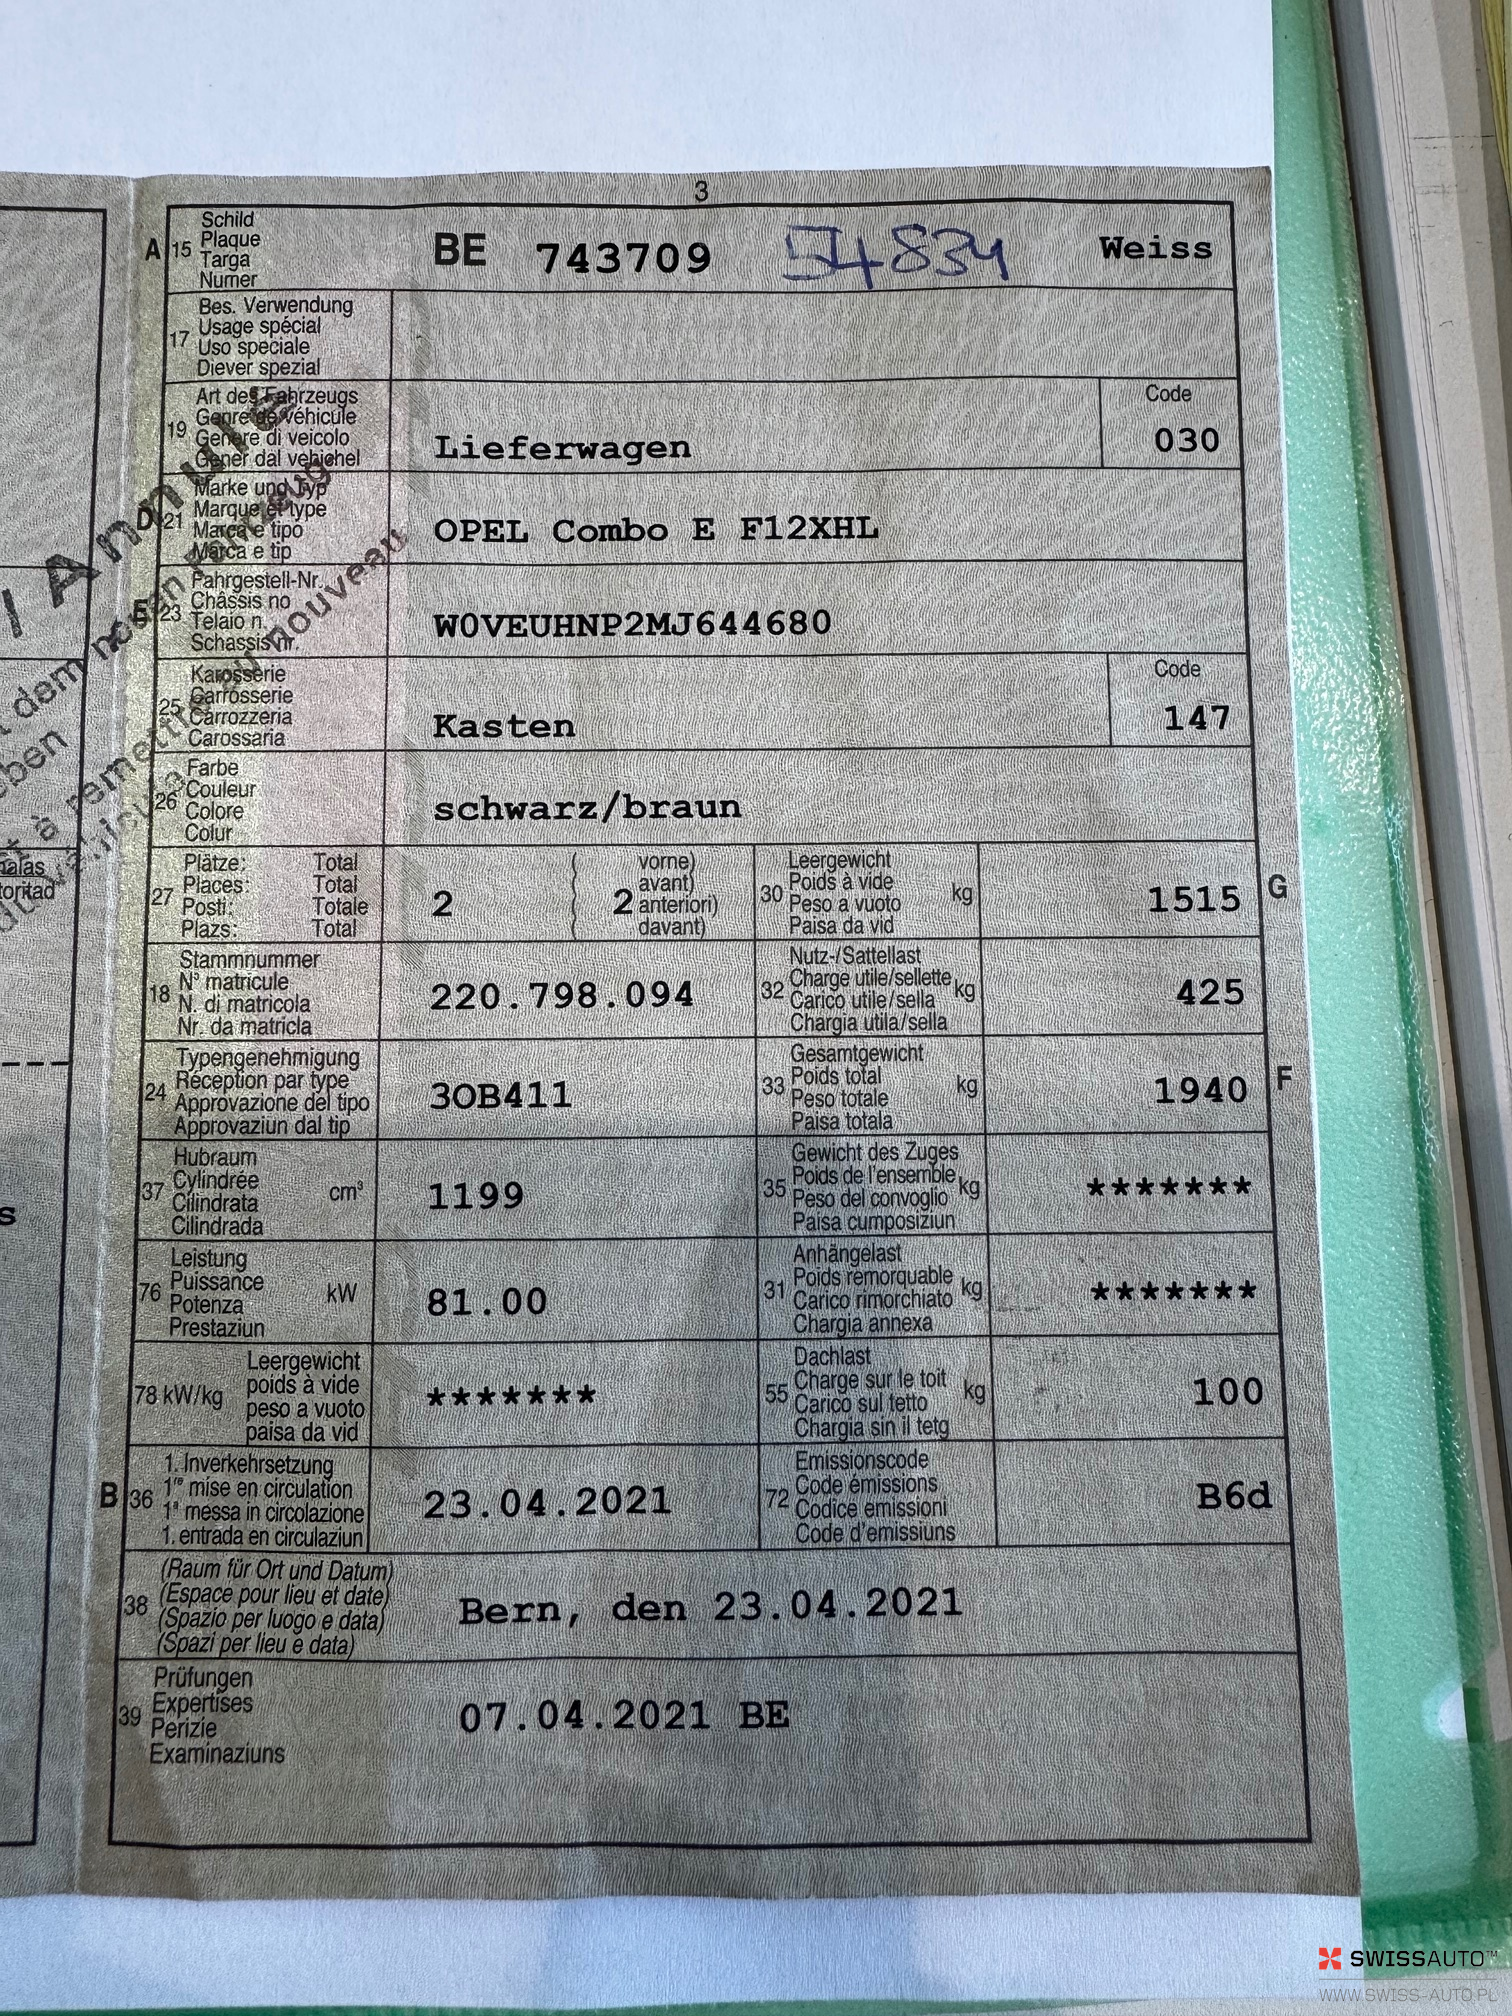 3
A 15 Schild
Plaque
Targa
Numer
BE 743709 54834 Weiss
17 Bes. Verwendung
Usage spécial
Uso speciale
Diever spezial
19 Art des Fahrzeugs
Genre de véhicule
Genere di veicolo
Gener dal vehichel
Lieferwagen
Code
030
D 21 Marke und Typ
Marque et type
Marca e tipo
Marca e tip
OPEL Combo E F12XHL
E 23 Fahrgestell-Nr.
Châssis no
Telaio n.
Schassis nr.
W0VEUHNP2MJ644680
25 Karosserie
Carrosserie
Carrozzeria
Carossaria
Kasten
Code
147
26 Farbe
Couleur
Colore
Colur
schwarz/braun
27 Plätze: Total
Places: Total
Posti: Totale
Plazs: Total
2
( vorne)
( avant)
2 ( anteriori)
( davant)
30 Leergewicht
Poids à vide
Peso a vuoto
Paisa da vid
kg
1515 G
18 Stammnummer
N° matricule
N. di matricola
Nr. da matricla
220.798.094
32 Nutz-/Sattellast
Charge utile/sellette
Carico utile/sella
Chargia utila/sella
kg
425
24 Typengenehmigung
Réception par type
Approvazione del tipo
Approvaziun dal tip
3OB411
33 Gesamtgewicht
Poids total
Peso totale
Paisa totala
kg
1940 F
37 Hubraum
Cylindrée
Cilindrata
Cilindrada
cm³
1199
35 Gewicht des Zuges
Poids de l'ensemble
Peso del convoglio
Paisa cumposiziun
kg
*******
76 Leistung
Puissance
Potenza
Prestaziun
kW
81.00
31 Anhängelast
Poids remorquable
Carico rimorchiato
Chargia annexa
kg
*******
78 kW/kg Leergewicht
poids à vide
peso a vuoto
paisa da vid
*******
55 Dachlast
Charge sur le toit
Carico sul tetto
Chargia sin il tetg
kg
100
B 36 1. Inverkehrsetzung
1re mise en circulation
1a messa in circolazione
1. entrada en circulaziun
23.04.2021
72 Emissionscode
Code émissions
Codice emissioni
Code d'emissiuns
B6d
38 (Raum für Ort und Datum)
(Espace pour lieu et date)
(Spazio per luogo e data)
(Spazi per lieu e data)
Bern, den 23.04.2021
39 Prüfungen
Expertises
Perizie
Examinaziuns
07.04.2021 BE
/ Annulé
dem neuen Fahrzeug
à remettre au nouveau
SWISSAUTO™
WWW.SWISS-AUTO.PL